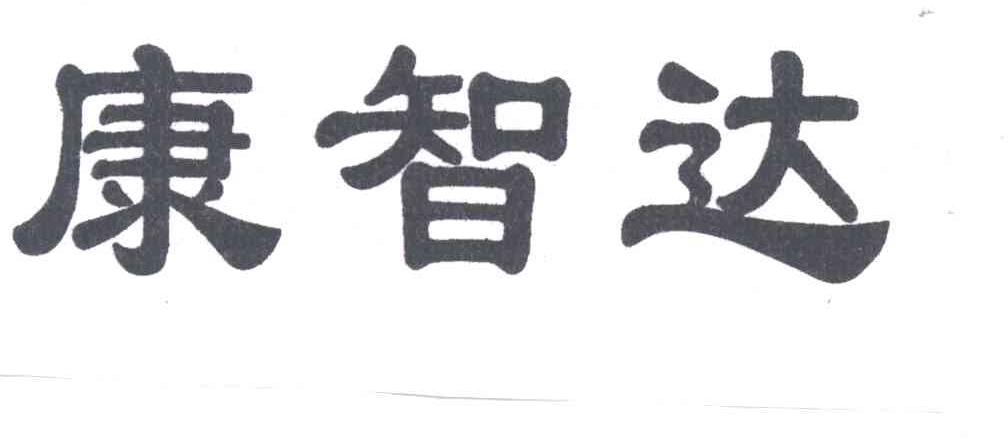 康智达